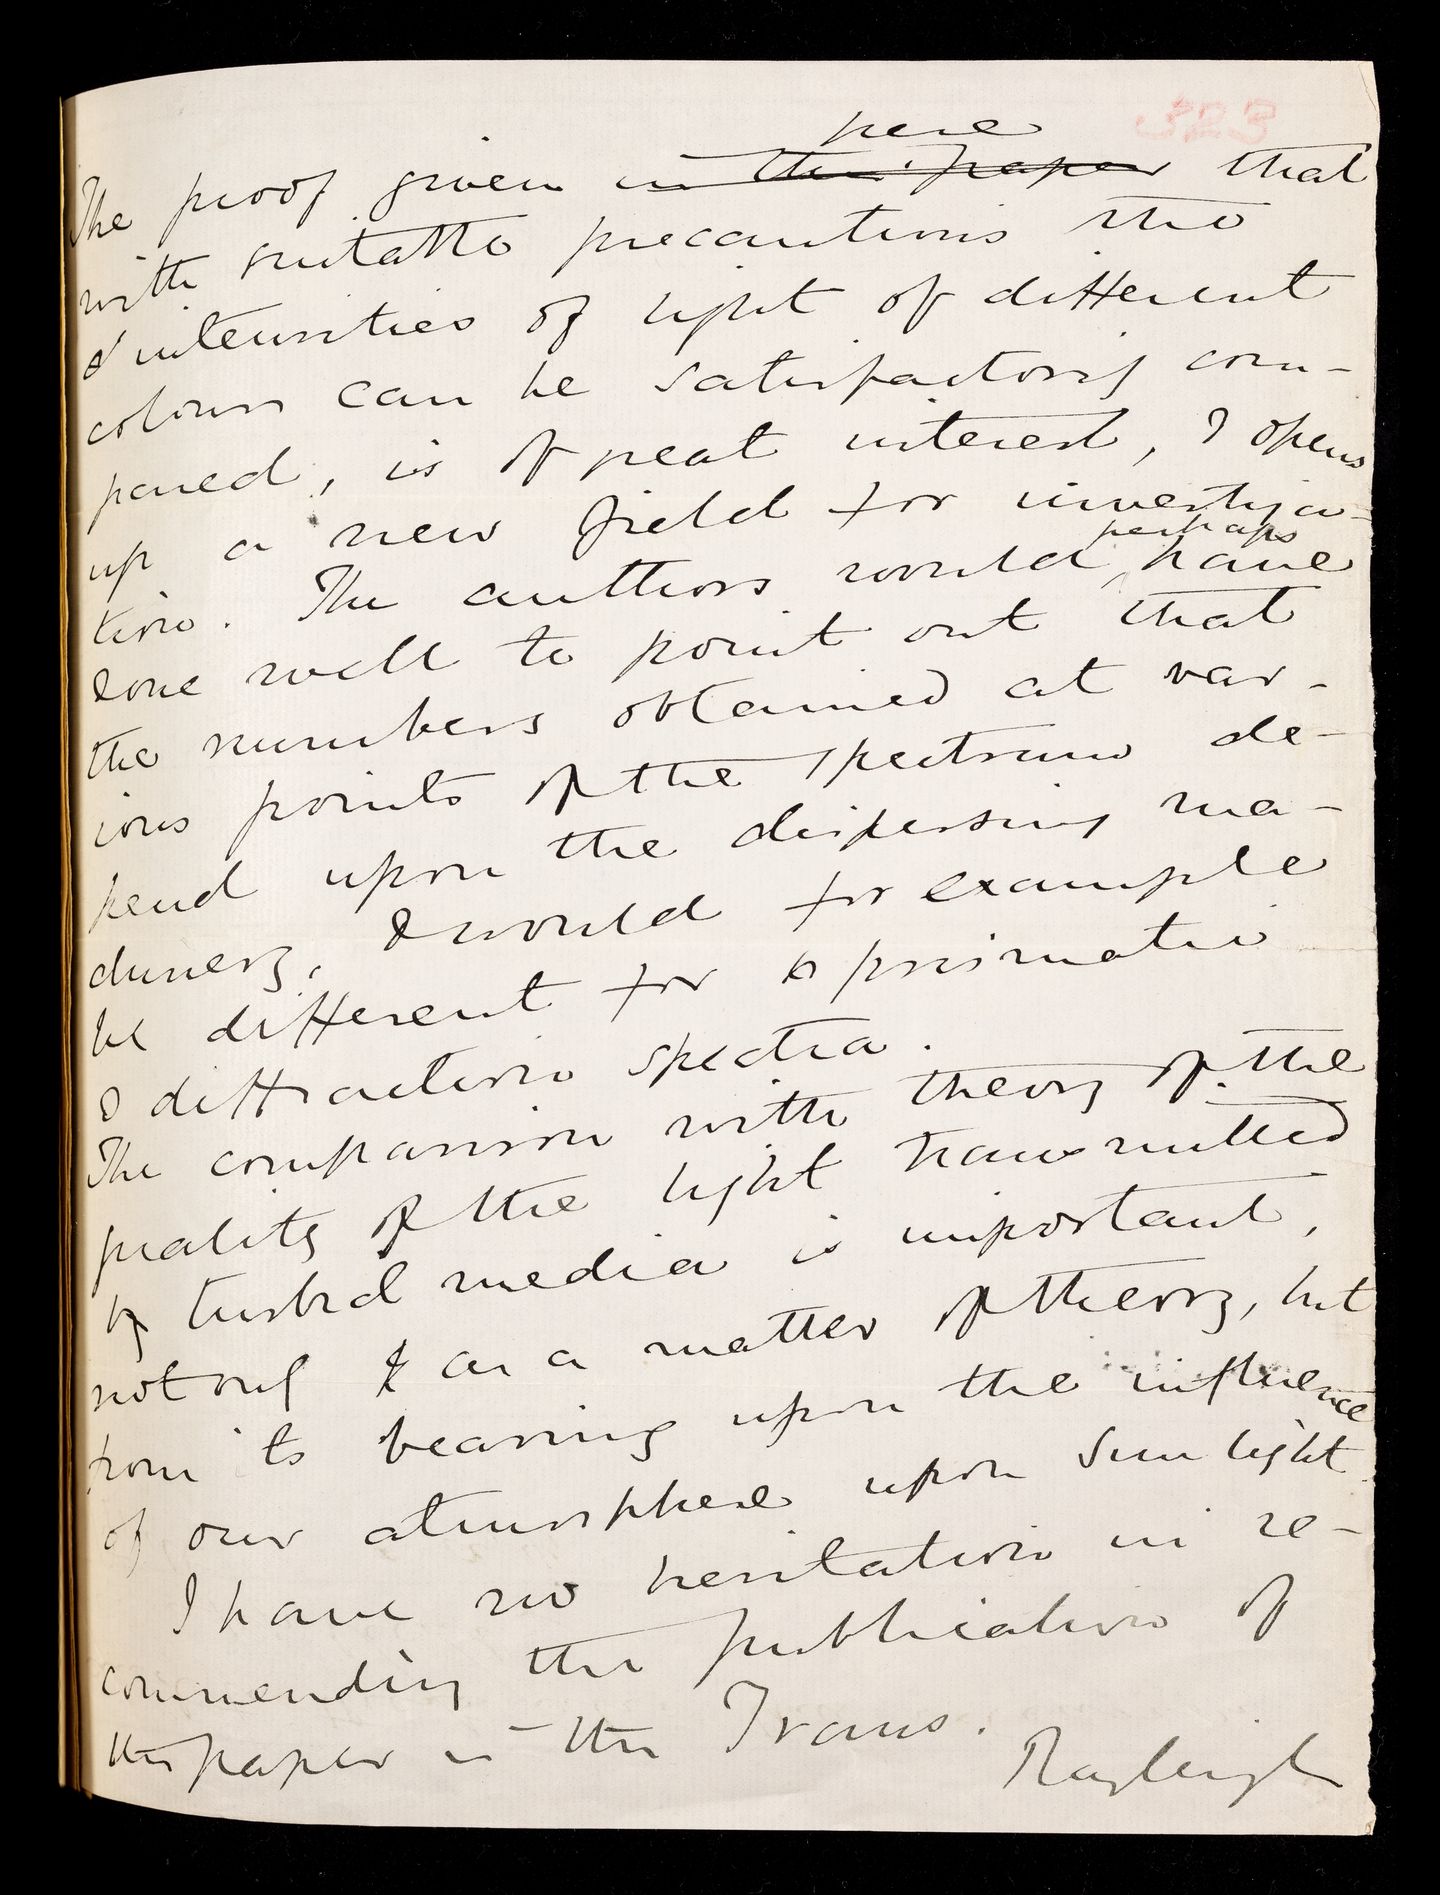 323
here
The proof given in this paper that
with suitable precautions the
intensities of light of different
colours can be satisfactorily com-
pared, is of great interest, & opens
up a new field for investiga-
perhaps
tion. The authors would have
done well to point out that
the numbers obtained at var-
ious points of the spectrum de-
pend upon the dispersing ma-
chinery, & would for example
be different for prismatic
& diffraction spectra.
The comparison with theory of the
quality of the light transmitted
by turbid media is important,
not only as a matter of theory, but
from its bearing upon the influence
of our atmosphere upon sun light.
I have no hesitation in re-
commending the publication of
this paper in the Trans.
Rayleigh